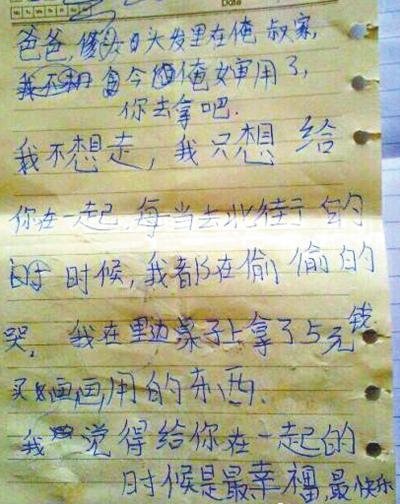 Date
爸爸,俊头日头发里在俺叔家,
我不 今 俺 用了,
你去拿吧.
我不想走,我只想给
你在一起.每当去北街 的
时候,我都在偷偷的
哭. 我在里边桌子上拿了5元钱
买 画画用的东西.
我 觉得给你在一起的
时候是最幸福,最快乐